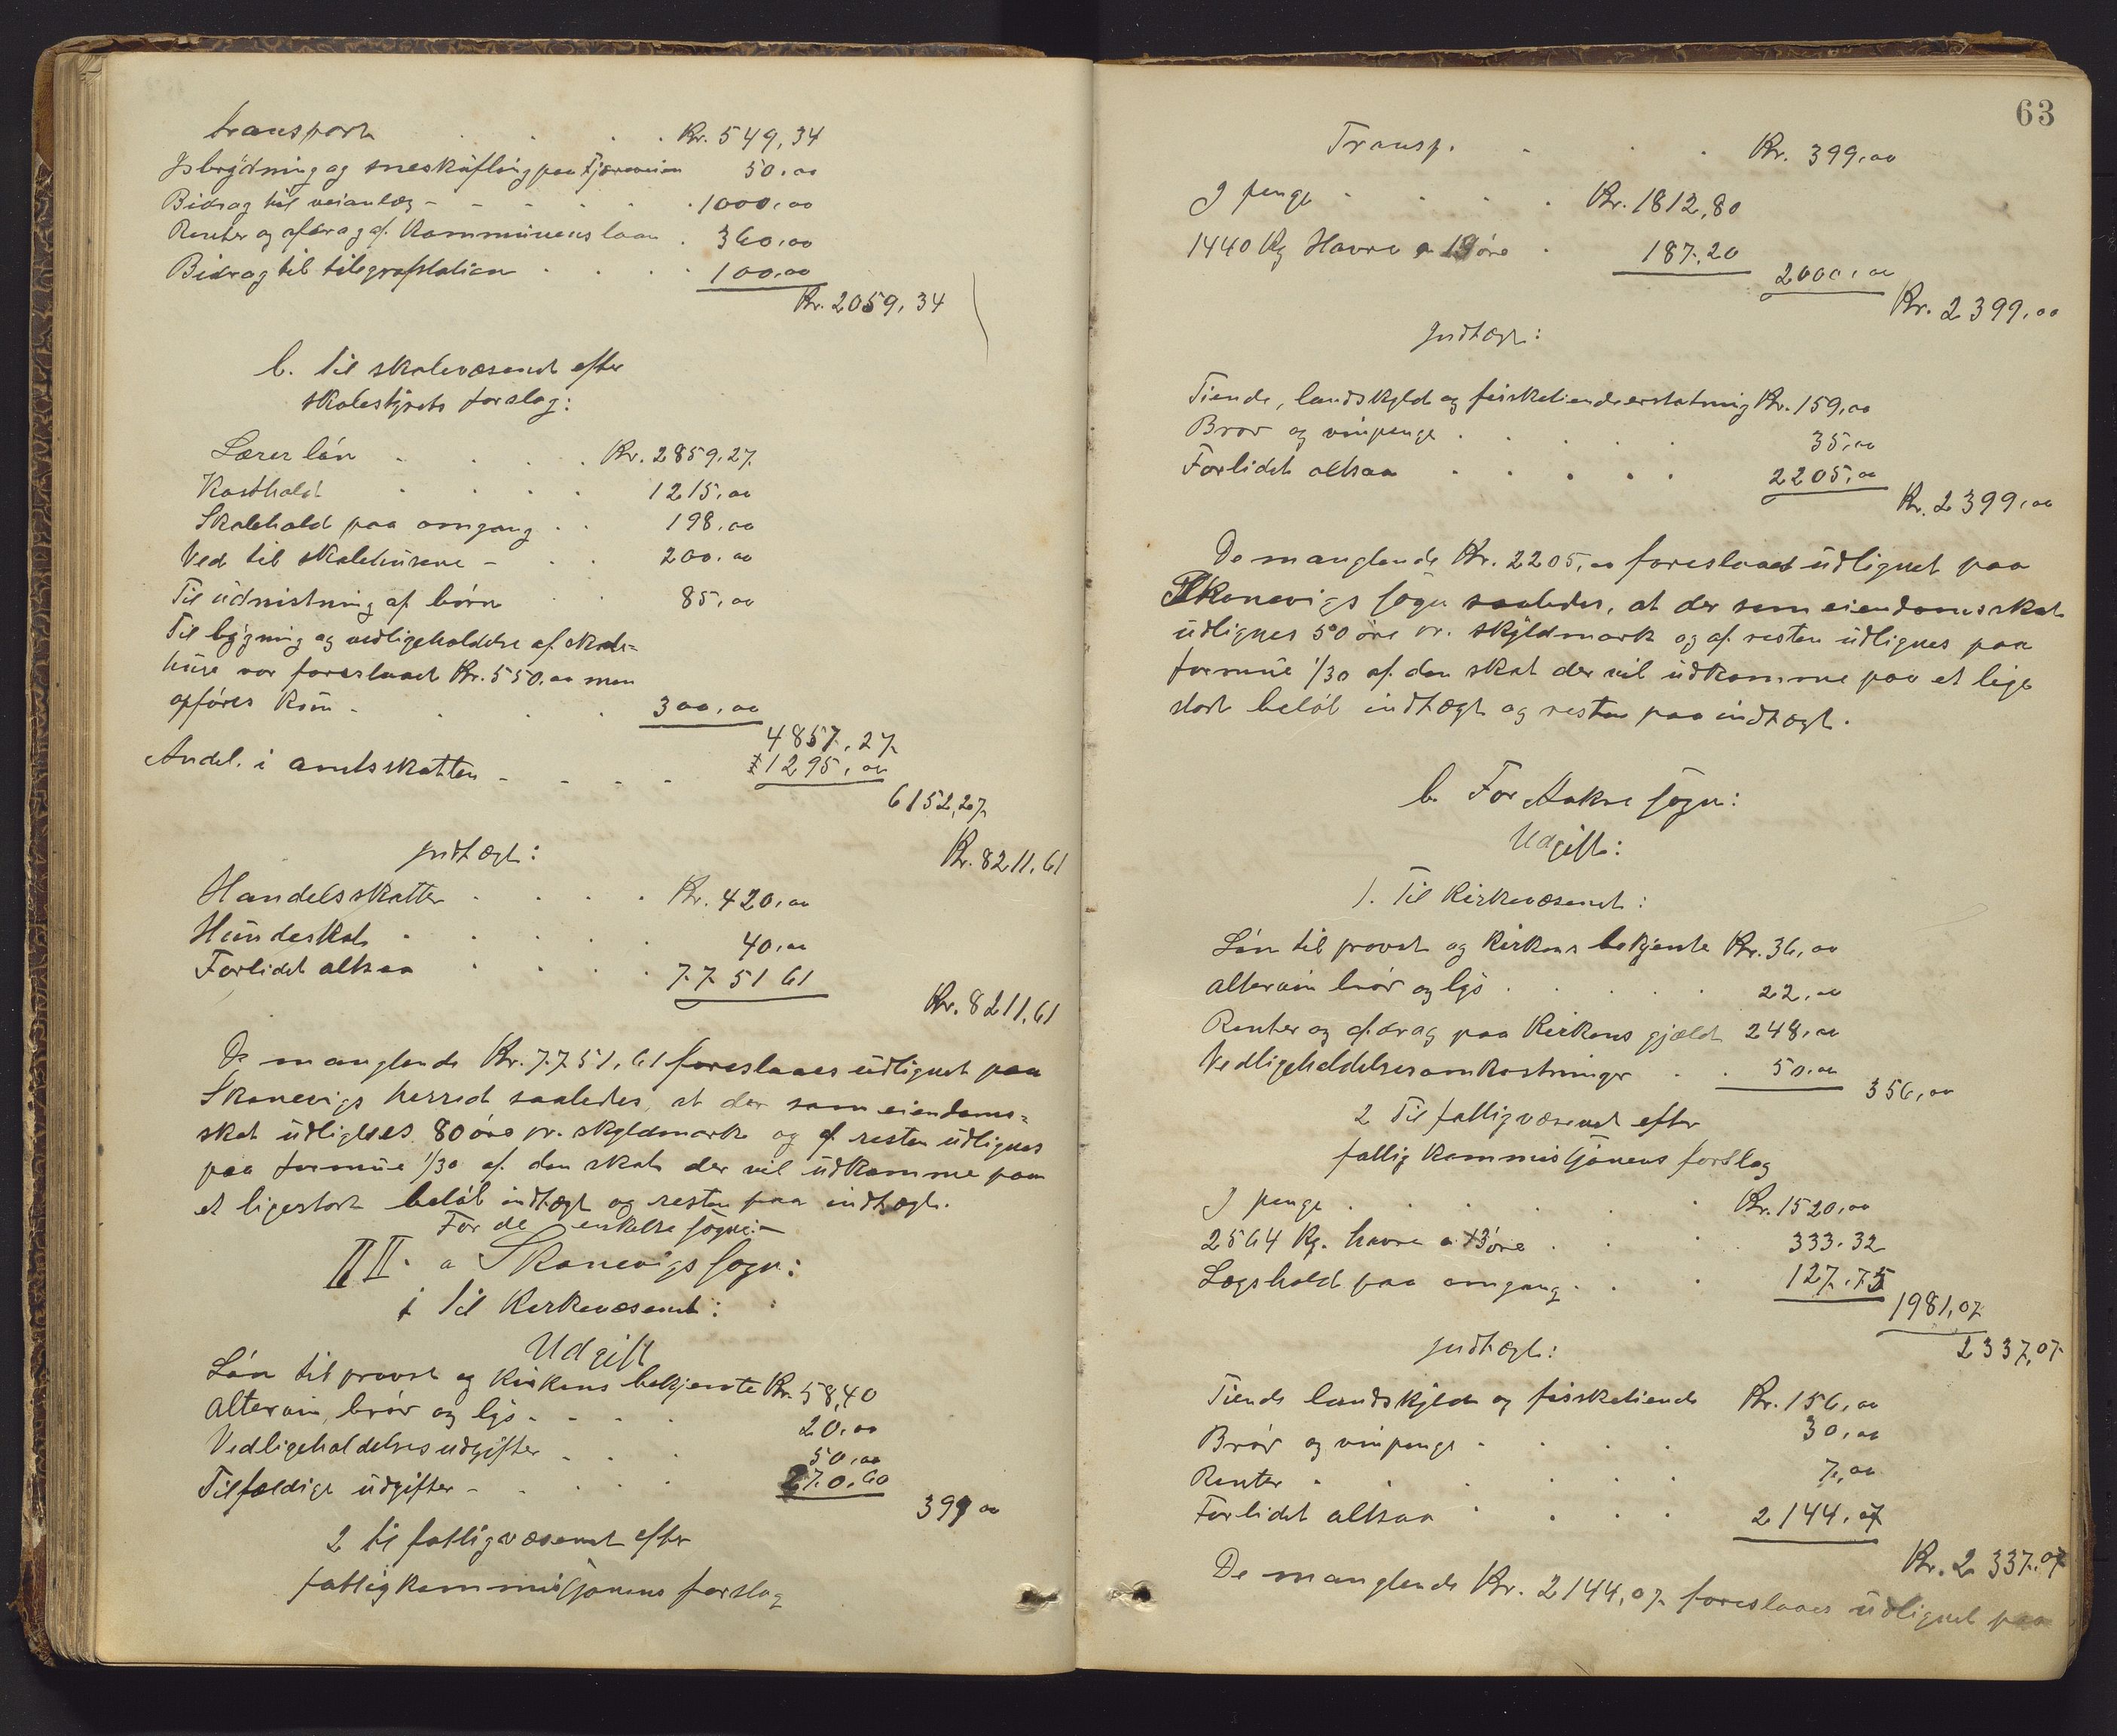 transport . . . . Kr. 549,34
Isbrydning og sneskufling paa Fjæraveien 50,00
Bidrag til veianlæg - - - . . 1000,00
Renter og afdrag af Kommunens laan . 360,00
Bidrag til telegrafstation . . . . 100,00
Kr. 2059,34
b. til skolevæsenet efter
skolestyrets forslag:
Lærer løn . . . . Kr. 2859,27
Kosthold . . . . 1215,00
Skolehold paa omgang . . 198,00
Ved til skolehusene - . . 200,00
Til udnistning af børn . . 85,00
Til bygning og vedligeholdelse af skole=
huse var foreslaaet Kr. 550,00 men
opføres kun - . . . 300,00
4857,27
Andel i amtsskatten - - - - 1295,00
6152,27
Kr. 8211,61
Indtægt:
Handelsskatter . . . . Kr. 420,00
Hundeskat . . . . . 40,00
Forlidet altsaa . . . . 7751 61
Kr. 8211,61
De manglende Kr. 7751,61 foreslaaes udlignet paa
Skonevigs herred saaledes, at der som eiendoms=
skat udlignes 80 øre pr. skyldmark og af resten udlignes
paa formue 1/30 af den skat der vil udkomme paa
et ligestort beløb indtægt og resten paa indtægt.
For de enkelte sogne:
II. a Skonevigs sogn:
1 Til Kirkevæsenet:
Udgift
Løn til provst og Kirkens betjente Kr. 58,40
Altervin, brød og lys - - - - 20,00
Vedligeholdelsesudgifter . . . 50,00
Tilfældige udgifter - . . . . 270,60
399 00
2 til fattigvæsenet efter
fattigkommissjonens forslag
63
Transp. . . . Kr. 399,00
I penge . . . . Kr. 1812,80
1440 Kg Havre a 13 øre . 187,20
2000,00
Kr. 2399,00
Indtægt:
Tiende, landskyld og fisketiendeerstatning Kr. 159,00
Brød og vinpenge . . . . . 35,00
Forlidet altsaa . . . . . 2205,00
Kr. 2399,00
De manglende Kr. 2205,00 foreslaaes udlignet paa
Skonevigs sogn saaledes, at der som eiendomsskat
udlignes 50 øre pr. skyldmark og af resten udlignes paa
formue 1/30 af den skat der vil udkomme paa et lige
stort beløb indtægt og resten paa indtægt.
b. For Aakre sogn:
Udgift:
1. Til Kirkevæsenet:
Løn til provst og Kirkens betjente Kr. 36,00
altervin brød og lys . . . . . 22,00
Renter og afdrag paa Kirkens gjæld 248,00
Vedligeholdelsesomkostninger . . 50,00
356,00
2 Til fattigvæsenet efter
fattig kommissjonens forslag
I penge . . . . . . Kr. 1520,00
2564 Kg. havre a 13 øre . . . 333.32
Lægshold paa omgang . . . 127.75
1981,07
2337,07
Indtægt:
Tiende landskyld og fisketiende Kr. 156,00
Brød og vinpenge . . . . 30,00
Renter . . . . . . 7,00
Forlidet altsaa . . . . 2144,07
Kr. 2337,07
De manglende Kr. 2144,07 foreslaaes udlignet paa